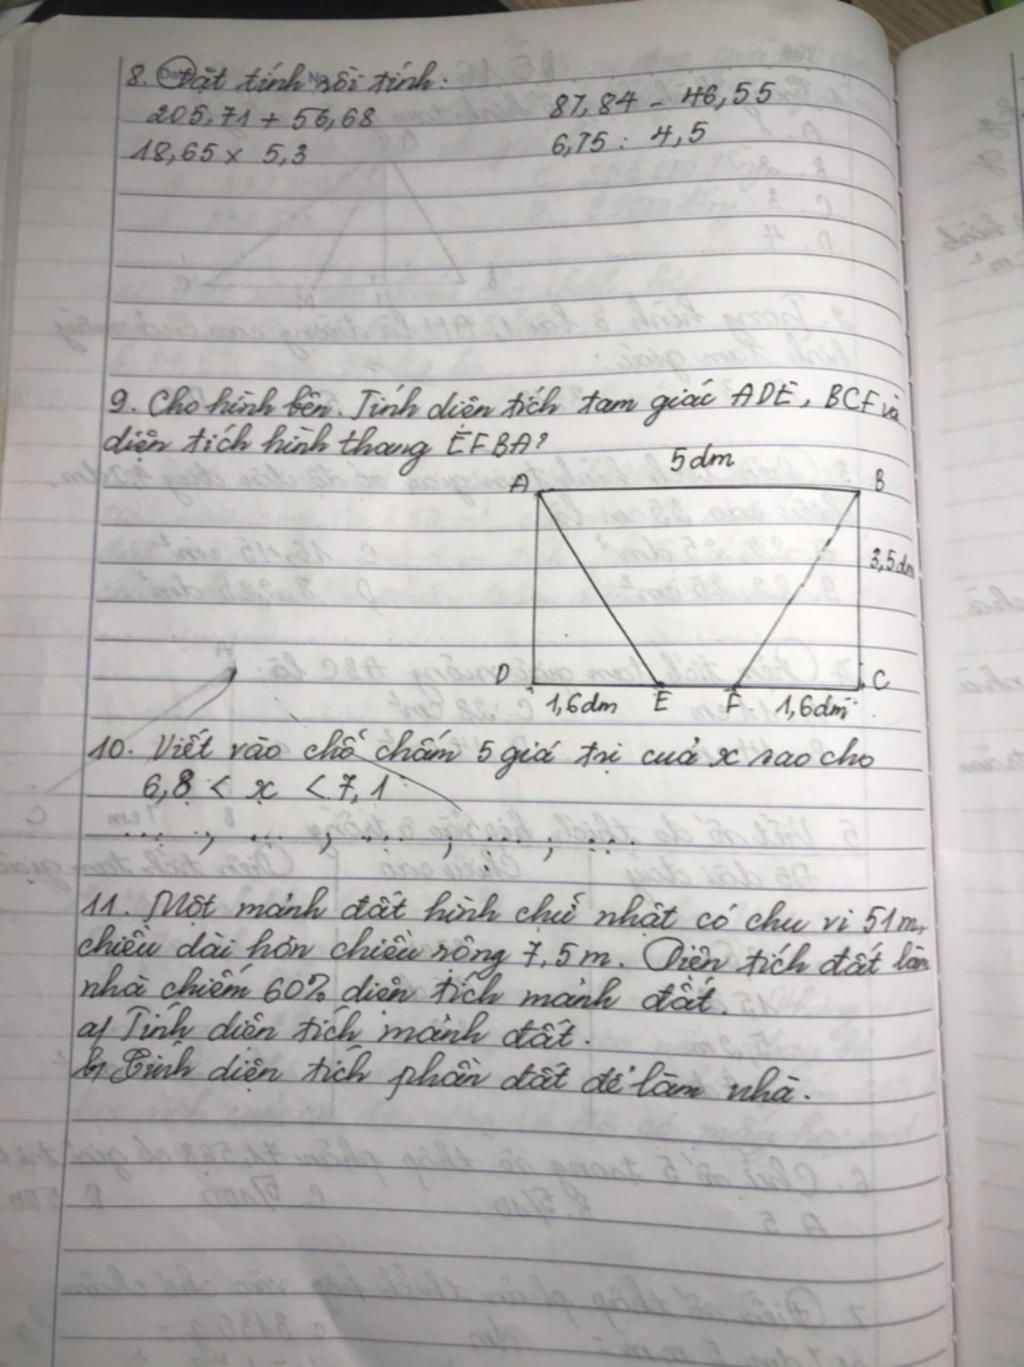 8. Đặt tính rồi tính:
205,71 + 56,68
87,84 - 46,55
18,65 x 5,3
6,75 : 4,5
9. Cho hình bên. Tính diện tích tam giác ADE, BCF và
diện tích hình thang EFBA?
5dm
A
B
3,5dm
D
C
1,6dm
E
F
1,6dm
10. Viết vào chỗ chấm 5 giá trị của x sao cho
6,8 < x < 7,1
....; ....; ....; ....; ....
11. Một mảnh đất hình chữ nhật có chu vi 51m,
chiều dài hơn chiều rộng 7,5m. Diện tích đất làm
nhà chiếm 60% diện tích mảnh đất.
a) Tính diện tích mảnh đất.
b) Tính diện tích phần đất để làm nhà.